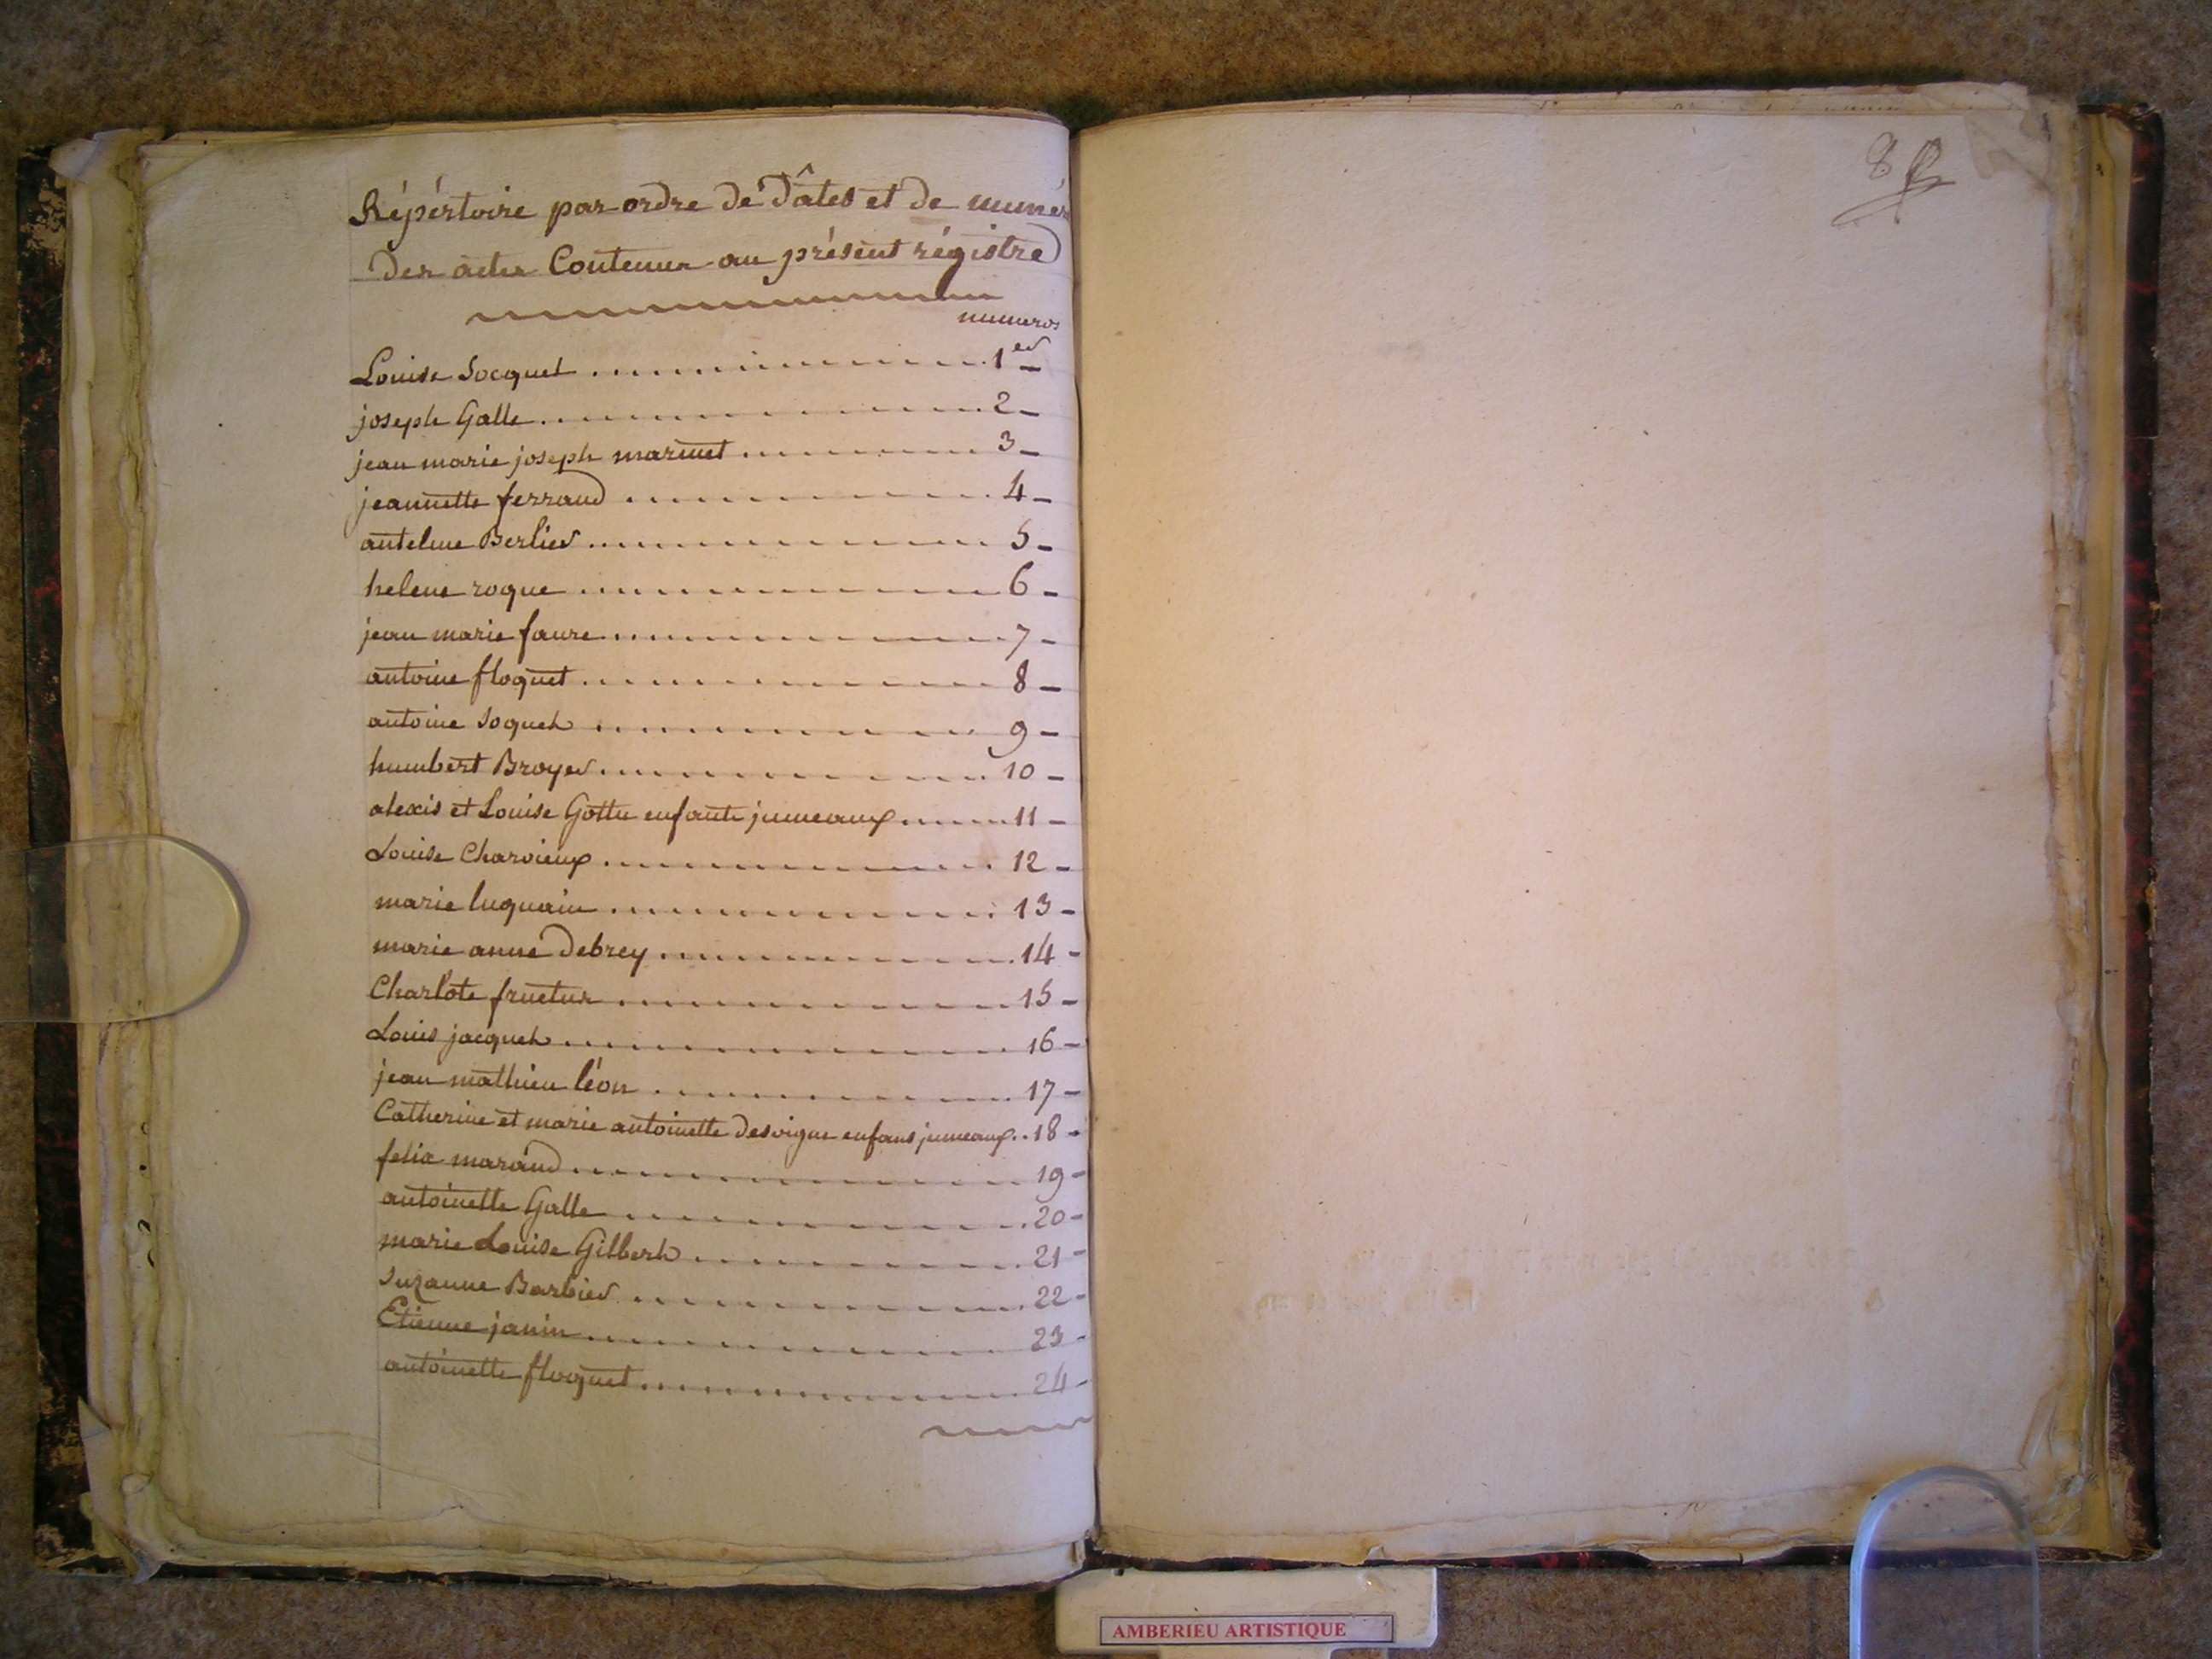 Répértoire par ordre de dâtes et de numér
Des actes Contenus au présent régistre
numeros
Louise Socquet 1er
joseph Galle 2
jean marie joseph marinet 3
jeannette ferrand 4
antelme Berlier 5
helene roque 6
jean marie faure 7
antoine floquet 8
antoine Soquet 9
humbert Broyer 10
alexis et Louise Gottu enfants jumeaux 11
Louise Charvieux 12
marie luquain 13
marie anne Debrey 14
Charlote fructus 15
Louis jacquet 16
jean mathieu léon 17
Catherine et marie antoinette Desvigne enfans jumeaux 18
felix marand 19
antoinette Galle 20
marie Louise Gilbert 21
Suzanne Barbier 22
Etienne janin 23
antoinette floquet 24
8
AMBERIEU ARTISTIQUE